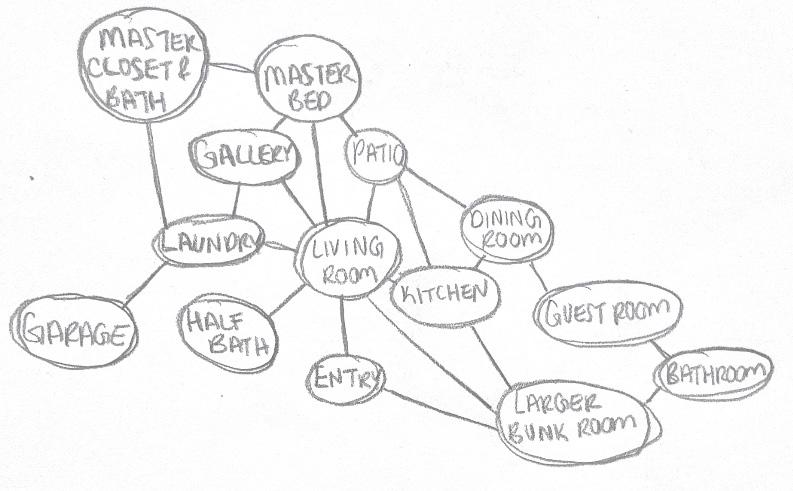 MASTER
CLOSET &
BATH
MASTER
BED
GALLERY
PATIO
DINING
ROOM
LAUNDRY
LIVING
ROOM
KITCHEN
GUEST ROOM
GARAGE
HALF
BATH
ENTRY
BATHROOM
LARGER
BUNK ROOM